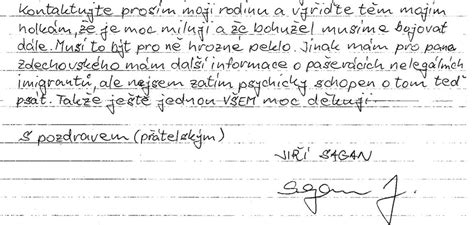 Kontaktujte prosím moji rodinu a vyřiďte těm mojim
holkám, že je moc miluji a že bohužel musíme bojovat
dále. Musí to být pro ně hrozne peklo. Jinak mám pro pana
zdechovského mám další informace o pašerácích nelegálních
imigrantů, ale nejsem zatím psychicky schopen o tom teď
psát. Takže ještě jednou VŠEM moc děkuji.
S pozdravem (přátelským)
JIŘÍ SAGAN
Sagan J.